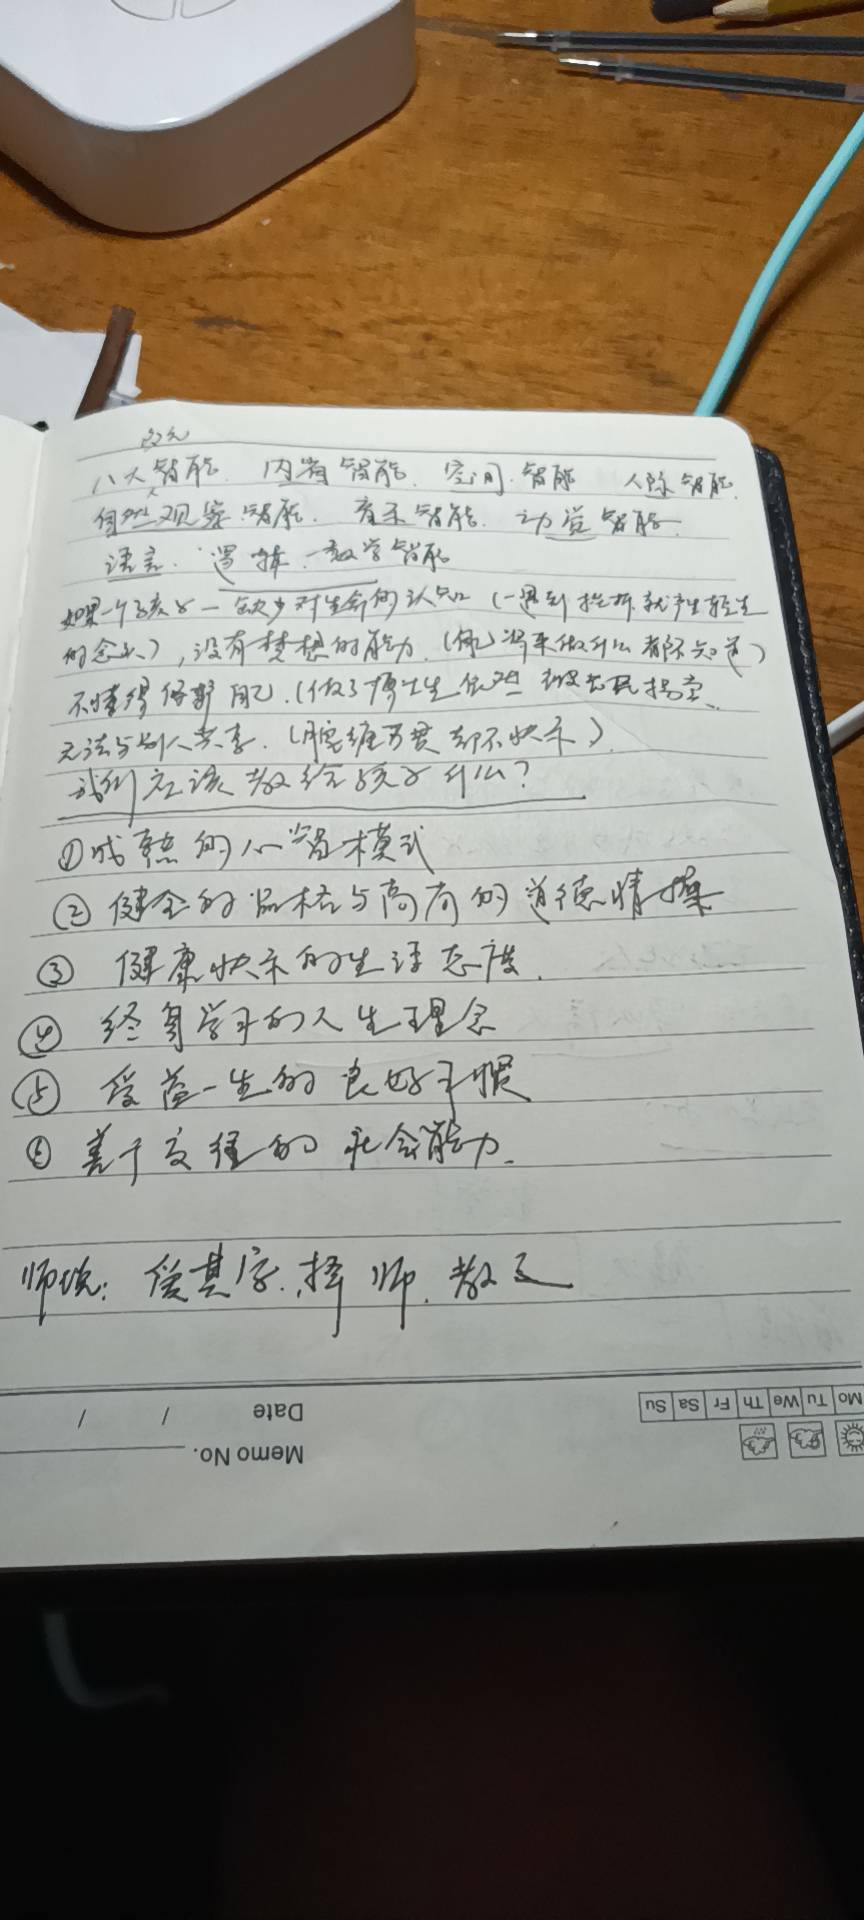 多元
八大智能. 内省智能. 空间.智能 人际智能.
自然观察智能. 音乐智能. 动觉智能.
语言. 逻辑-数学智能
如果一个孩子一缺少对生命的认知 (一遇到挫折就产生轻生
的念头), 没有梦想的能力. 将来做什么都不知道)
不懂得保护自己. (做了博士生依然被农民拐卖.
无法与别人共享. (腰缠万贯却不快乐).
我们应该教给孩子什么?
①成熟的心智模式
② 健全的品格与高尚的道德情操
③ 健康快乐的生活态度.
④ 终身学习的人生理念
⑤ 受益一生的良好习惯
⑥ 善于交往的社会能力.
师说: 爱其字.择师.教之
Date / /
Memo No.
Mo Tu We Th Fr Sa Su